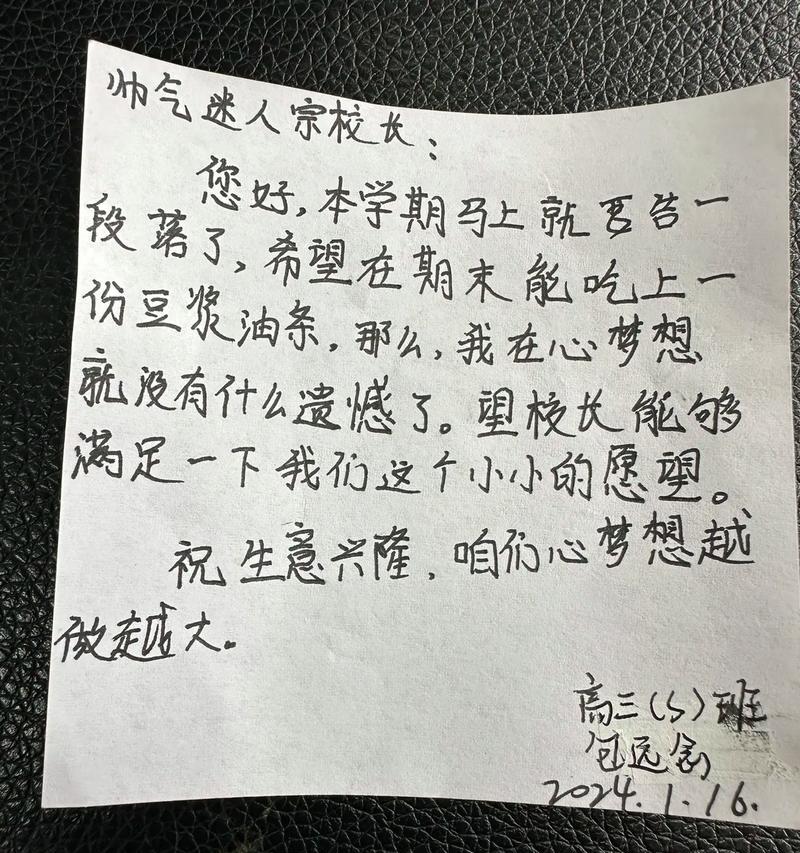 帅气迷人宗校长:
您好,本学期马上就要告一
段落了,希望在期末能吃上一
份豆浆油条,那么,我在心梦想
就没有什么遗憾了。望校长能够
满足一下我们这个小小的愿望。
祝生意兴隆,咱们心梦想越
做越大。
高三(5)班
2024.1.16.